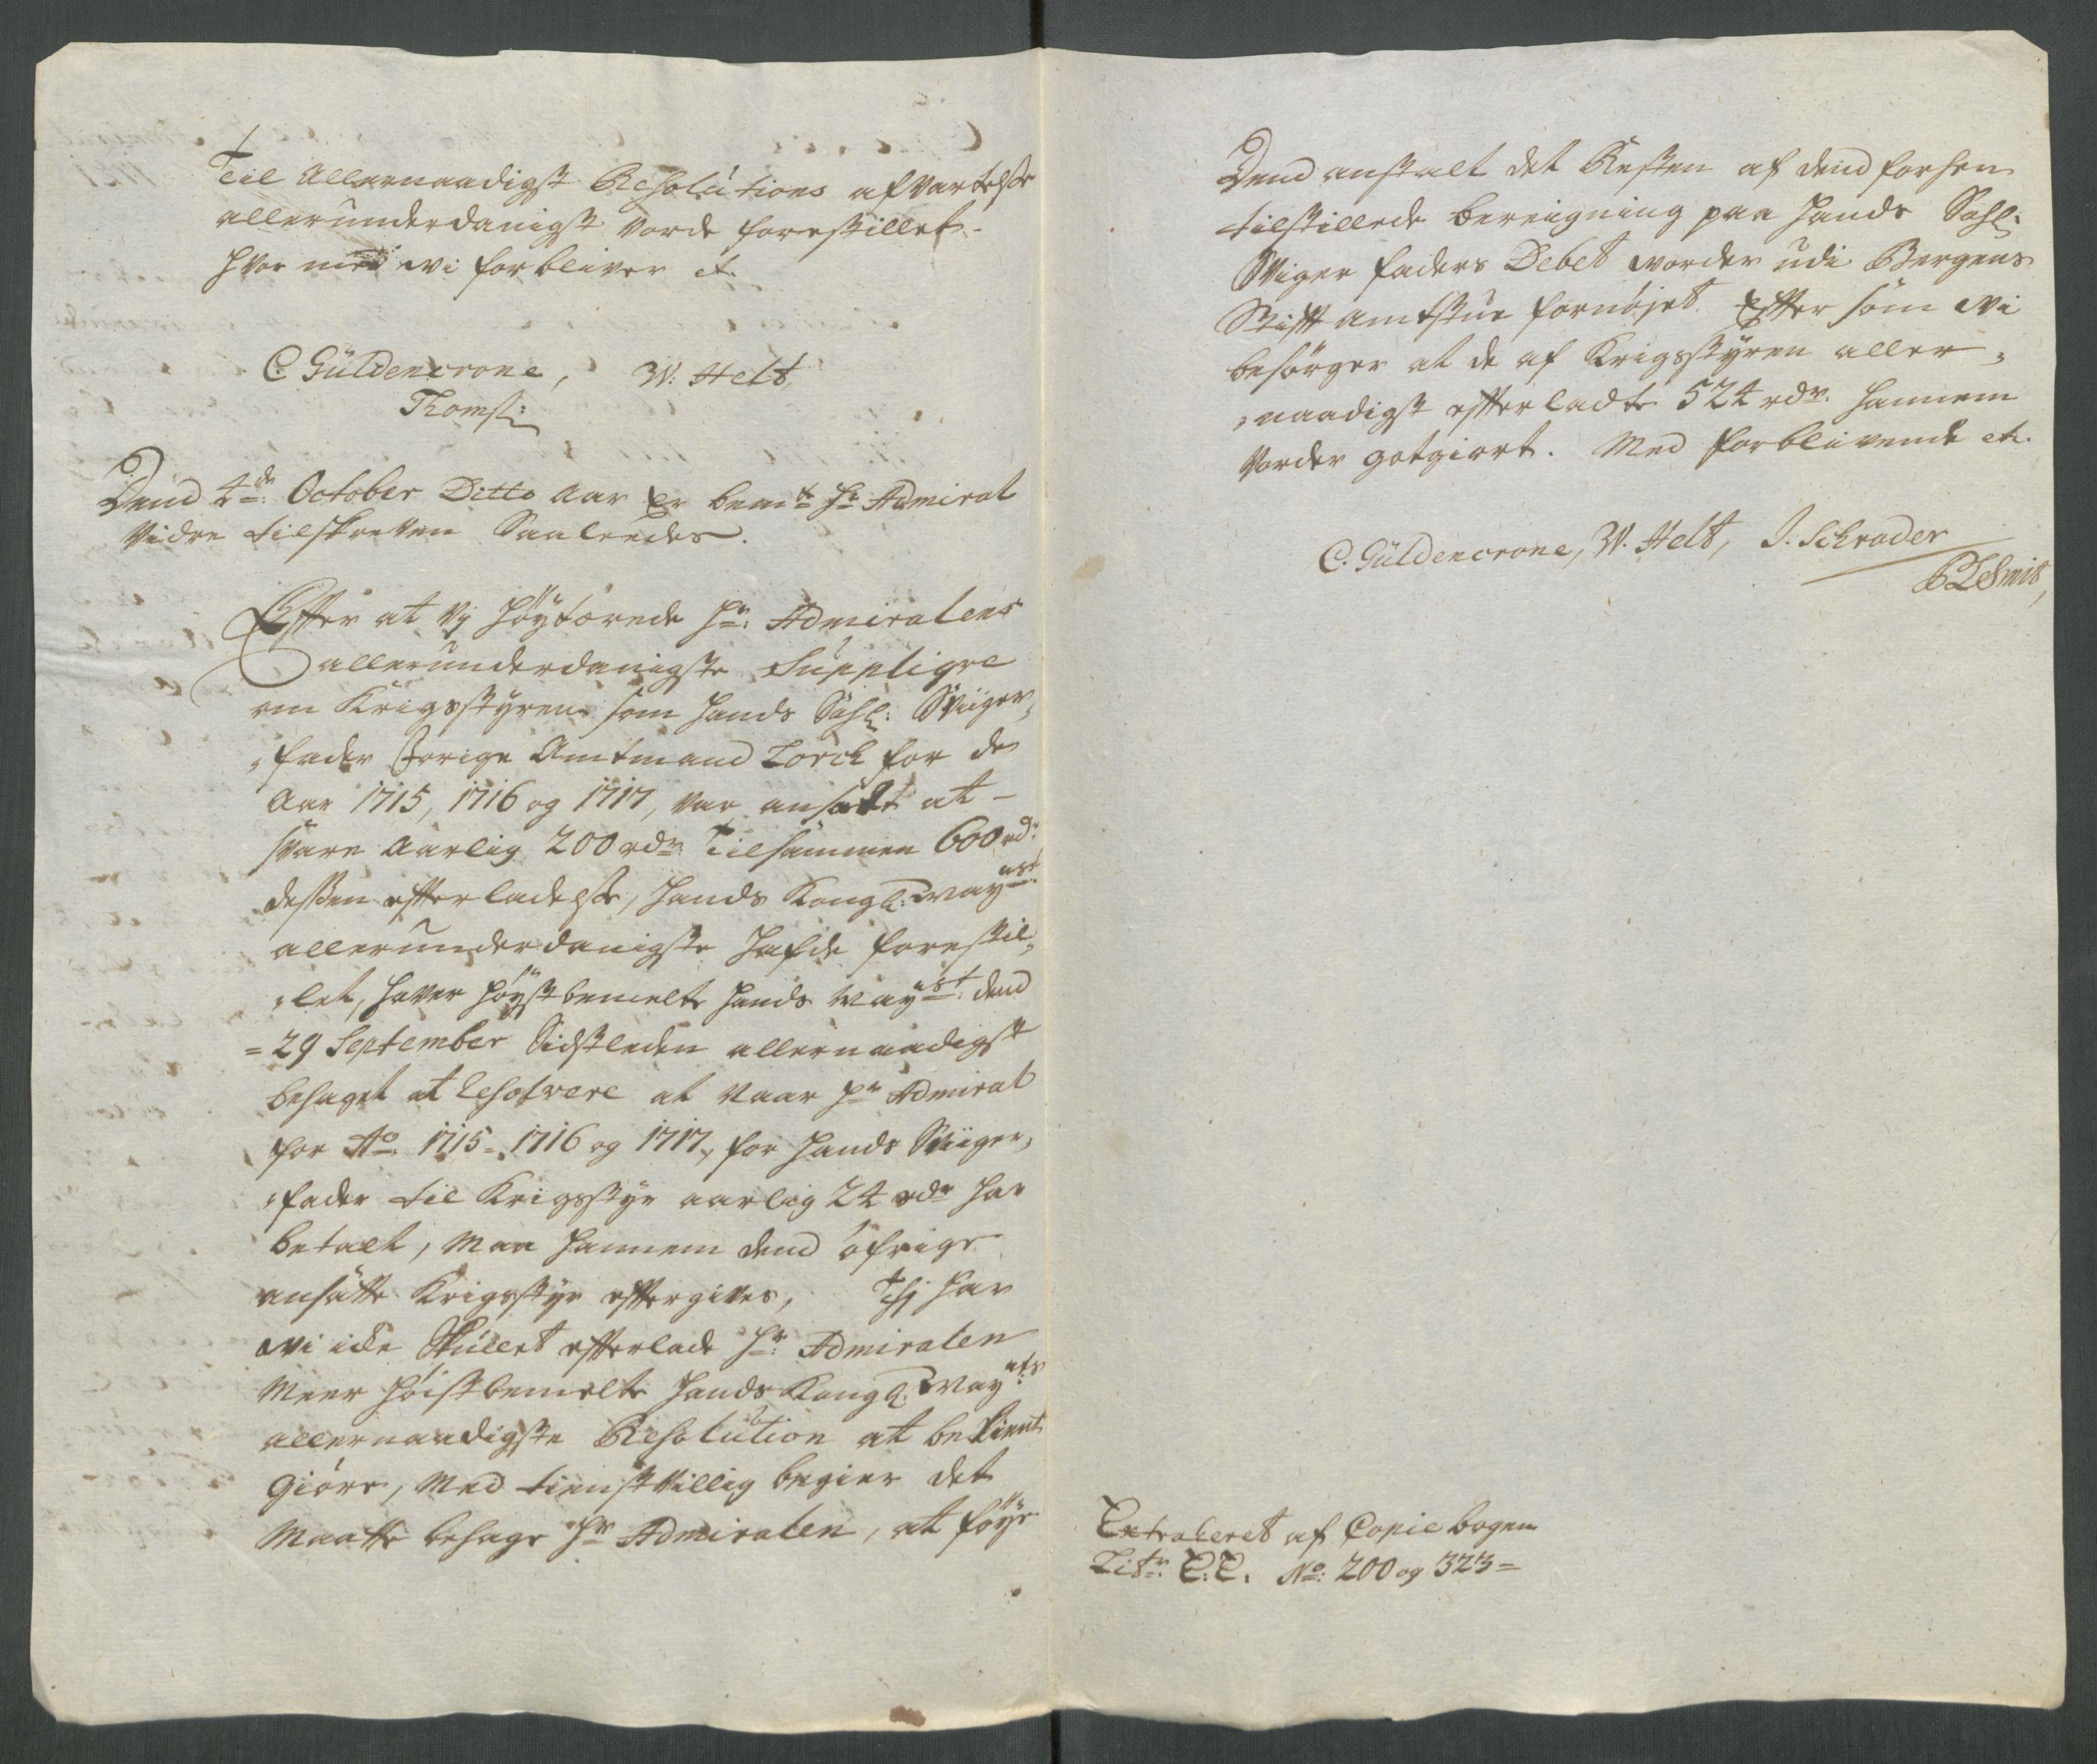 Til Allernaadigst Resolutions afvartelse
allerunderdanigst vorde forestillet.
hvor med vi forbliver etc.
C Güldencrone, W: Helt,
Thoms:
Dend 4de: October Ditto Aar Er bemte Hr Admiral
vidre tilskreven Saaledes.
Efter at vj høytærede Hr: Admiralens
allerunderdanigste Suppligve
om Krigsstyren som hands Sahl: Sviiger,
„fader forige Amtmand Lorck for de
Aar 1715, 1716 og 1717, var ansadt at
svare Aarlig 200 rdr: Tilsammen 600 rdr
dessen efterladelse, hands Kongl: Mayst:
allerunderdanigste hafde forestil„
„let, haver høystbemelte hands Mayst: dend
= 29 September Sidstleden allernaadigst
behaget at Resolvere at naar Hr Admiral
for Ao: 1715 = 1716 og 1717, for hands Sviiger,
„fader til Krigsstyr aarlig 24 rdr har
betalt, maa hannem dend øfrige
ansatte Krigsstyr eftergives, Thj har
vi icke skullet efterlade Hr: Admiralen
meer høistbemelte hands Kongl: Mayts
allernaadigste Resolution at bekient
giøre, med tienstvillig begier det
maatte behage Hr Admiralen, at føye
Dend anstalt det Resten af dend forhen
tilstillede bereigning paa hands Sahl:
Sviger faders Debet vorder udi Bergens
Stift Amtstue fornøjet. Efter som vi
besørger at de af Krigsstyren aller„
„naadigst efterladte 524 rdr. hannem
vorder gotgiort. Med forblivende etc.
C. Güldencrone, W. Helt, J. Schrader
Extraheret af Copie bogen
Litr: C.C. No: 200 og 323 =